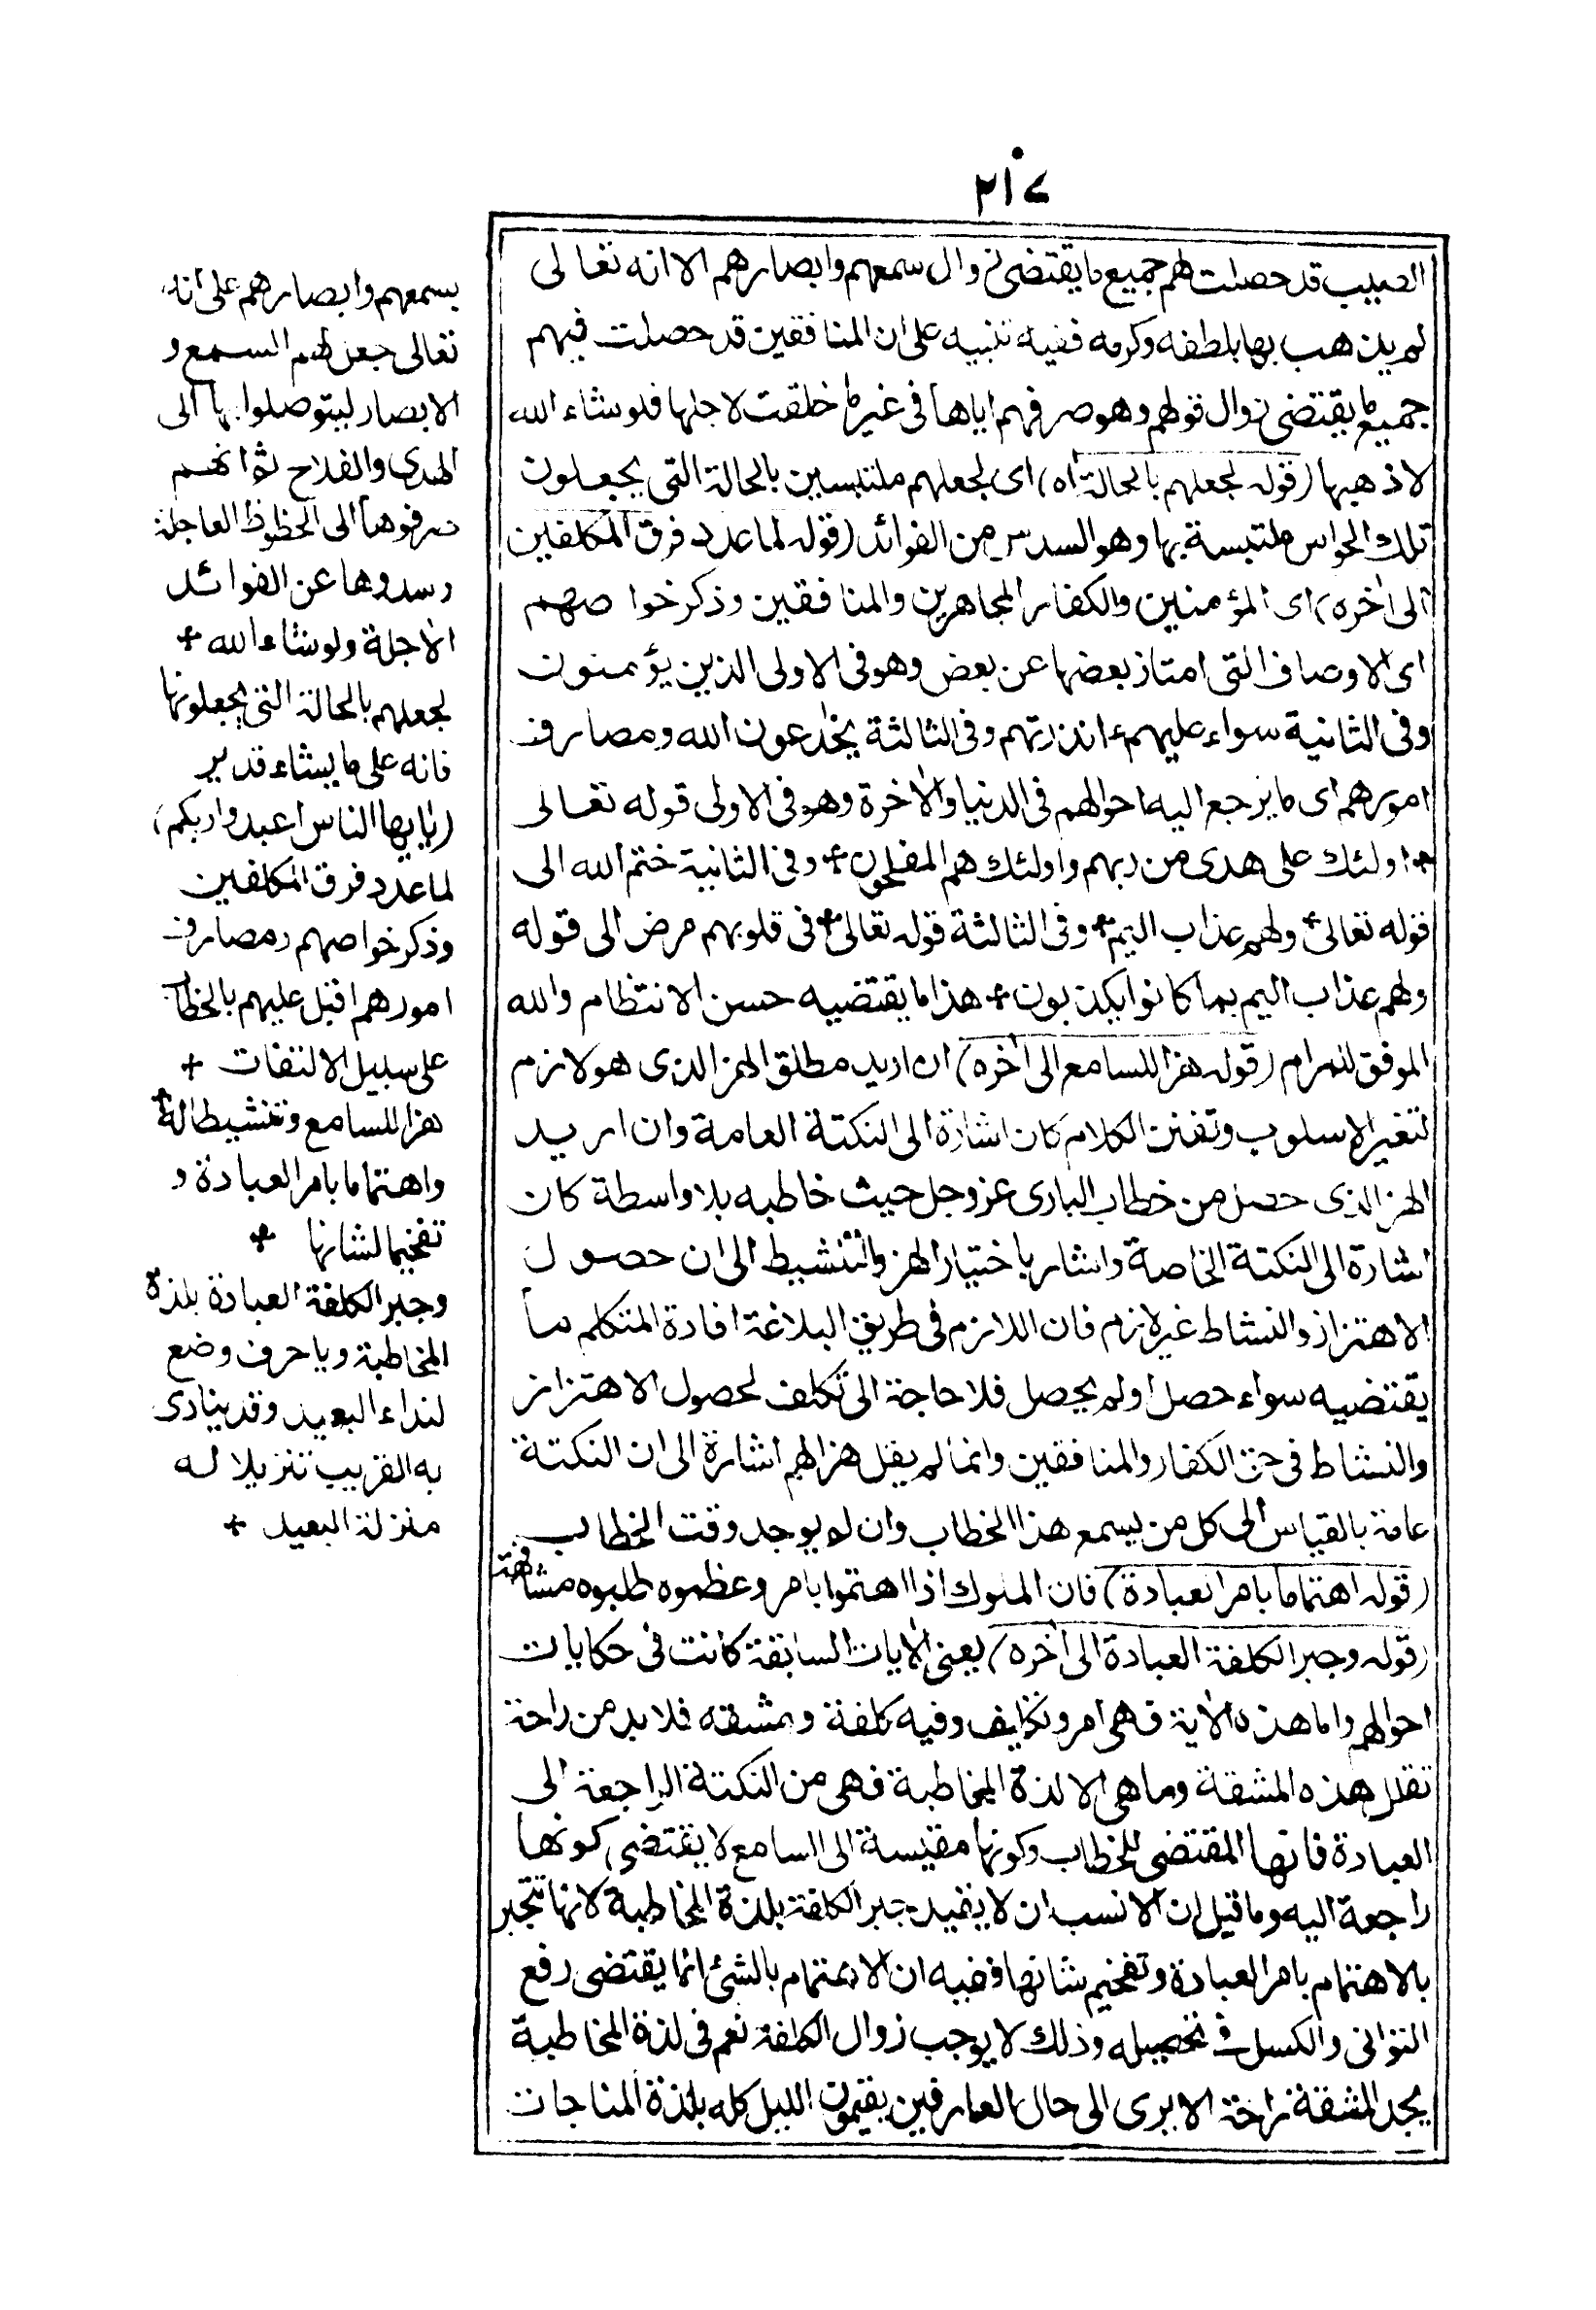 ٢١٧
الصيب قد حصلت لهم جميع ما يقتضى زوال سمعهم وابصارهم الا انه تعالى
لم يذهب بها بلطفه وكرمه ففيه تنبيه على ان المنافقين قد حصلت فيهم
جميع ما يقتضى زوال قولهم وهو صرفهم اياها فى غير ما خلقت لاجلها فلو شاء الله
لاذهبها (قوله لجعلهم بالحالة اه) اى لجعلهم ملتبسين بالحالة التى يجعلون
تلك الحواس ملتبسة بها وهو السدس من الفوائد (قوله لما عدد فرق المكلفين
الى اخره) اى المؤمنين والكفار المجاهرين والمنافقين وذكر خواصهم
اى الاوصاف التى امتاز بعضها عن بعض وهو فى الاولى الذين يؤمنون
وفى الثانية سواء عليهم ءانذرتهم وفى الثالثة يخدعون الله ومصارف
امورهم اى ما يرجع اليه احوالهم فى الدنيا والاخرة وهو فى الاولى قوله تعالى
+ اولئك على هدى من ربهم واولئك هم المفلحون + وفى الثانية ختم الله الى
قوله تعالى + ولهم عذاب اليم + وفى الثالثة قوله تعالى + فى قلوبهم مرض الى قوله
ولهم عذاب اليم بما كانوا يكذبون + هذا ما يقتضيه حسن الانتظام والله
الموفق للمرام (قوله هزا للسامع الى اخره) ان اريد مطلق الهز الذى هو لازم
لتغير الاسلوب وتفنن الكلام كان اشارة الى النكتة العامة وان اريد
الهز الذى حصل من خطاب البارى عز وجل حيث خاطبه بلا واسطة كان
اشارة الى النكتة الخاصة واشار باختيار الهز والتنشيط الى ان حصول
الاهتزاز والنشاط غير لازم فان اللازم فى طريق البلاغة افادة المتكلم ما
يقتضيه سواء حصل او لم يحصل فلا حاجة الى تكلف لحصول الاهتزاز
والنشاط فى حق الكفار والمنافقين وانما لم يقل هزا لهم اشارة الى ان النكتة
عامة بالقياس الى كل من يسمع هذا الخطاب وان لم يوجد وقت الخطاب
(قوله اهتماما بامر العبادة) فان الملوك اذا اهتموا بامر وعظموه طلبوه مشافهة
(قوله وجبر الكلفة العبادة الى اخره) يعنى الايات السابقة كانت فى حكايات
احوالهم واما هذه الاية فهى امر وتكليف وفيه كلفة ومشقه فلا بد من راحة
تقلل هذه المشقة وما هى الا لذة المخاطبة فهى من النكتة الراجعة الى
العبادة فانها المقتضى للخطاب وكونها مقيسة الى السامع لا يقتضى كونها
راجعة اليه وما قيل ان الانسب ان لا يقيد جبر الكلفة بلذة المخاطبة لانها تنجبر
بالاهتمام بامر العبادة وتفخيم شانها ففيه ان الاهتمام بالشئ انما يقتضى رفع
التوانى والكسل فى تحصيله وذلك لا يوجب زوال الكلفة نعم فى لذة المخاطبة
يجد المشقة راحة الا يرى الى حال العارفين يقيمون الليل كله بلذة المناجات
بسمعهم وابصارهم على انه
تعالى جعل لهم السمع و
الابصار ليتوصلوا بها الى
الهدى والفلاح ثم انهم
صرفوها الى الحظوظ العاجلة
وسدوها عن الفوائد
الاجلة ولو شاء الله +
لجعلهم بالحالة التى يجعلونها
فانه على ما يشاء قدير
(يايها الناس اعبدوا ربكم)
لما عدد فرق المكلفين
وذكر خواصهم ومصارف
امورهم اقبل عليهم بالخطاب
على سبيل الالتفات +
هزا للسامع وتنشيطا له +
واهتماما بامر العبادة و
تفخيما لشانها +
وجبر الكلفة العبادة بلذة
المخاطبة ويا حرف وضع
لنداء البعيد وقد ينادى
به القريب تنزيلا له
منزلة البعيد +